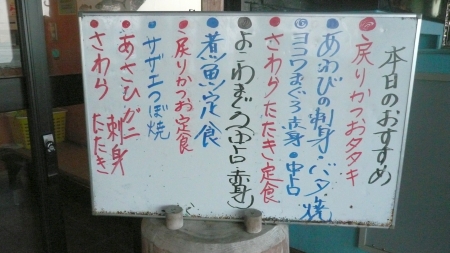 本日のおすすめ
戻りかつおタタキ
あわびの刺身・バタ焼
ヨコワまぐろ赤身・中占
さわらたたき定食
よこわまぐろ(中占 赤身)
煮魚定食
戻りかつお定食
サザエつぼ焼
あさひガニ
さわら 刺身 たたき